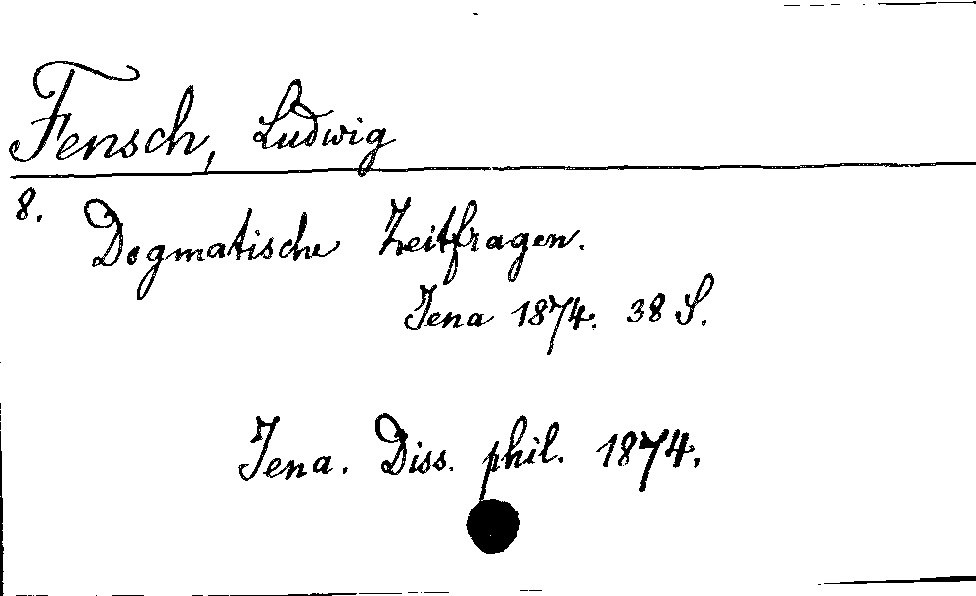 Fensch, Ludwig
8. Dogmatische Zeitfragen.
Jena 1874. 38 S.
Jena. Diss. phil. 1874.